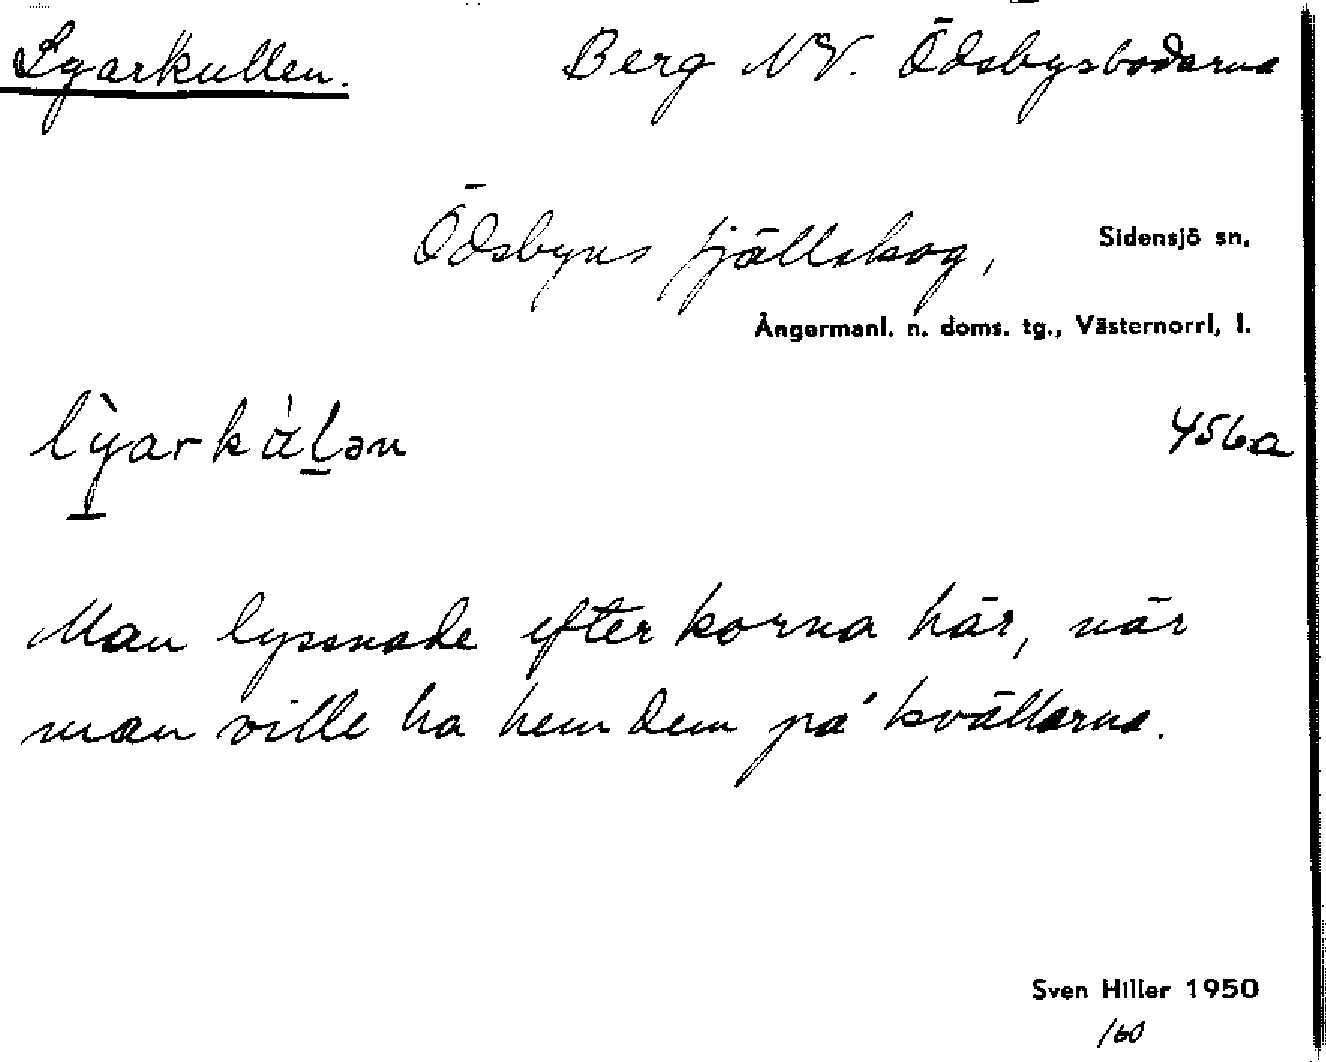 Lyarkullen. Berg NV. Ödsbysbodarna
Ödsbyns fjällskog, Sidensjö sn.
Ångermanl. n. doms. tg., Västernorrl. l.
456a
Man lyssnade efter korna här, när
man ville ha hem dem på kvällarna.
Sven Hiller 1950
/60